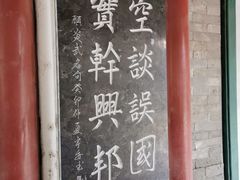 空談誤國
實幹興邦
顧炎武名句癸卯年夏